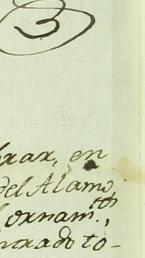 3
rar, en
del Alamo,
ornam.tos,
ntrado to-